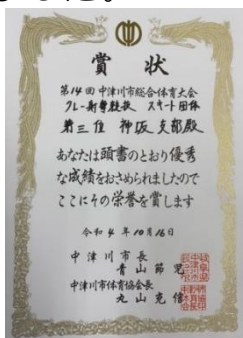 賞状
第14回中津川市総合体育大会
クレー射撃競技 スキート団体
第三位 神坂支部殿
あなたは頭書のとおり優秀
な成績をおさめられましたので
ここにその栄誉を賞します
令和4年10月16日
中津川市長
青山節児
中津川市体育協会長
丸山克信